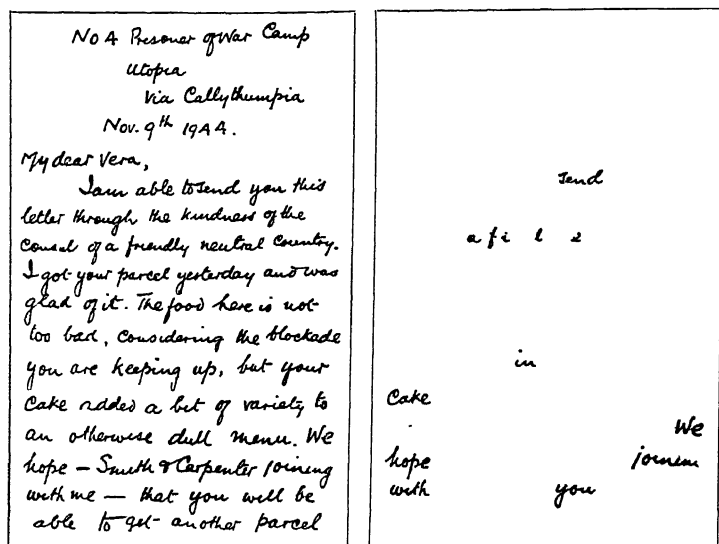 No 4 Prisoner of War Camp
Utopia
Via Callythumpia
Nov. 9th 1944.
My dear Vera,
I am able to send you this
letter through the kindness of the
Consul of a friendly neutral country.
I got your parcel yesterday and was
glad of it. The food here is not
too bad, considering the blockade
you are keeping up, but your
cake added a bit of variety to
an otherwise dull menu. We
hope — Smith & Carpenter joining
with me — that you will be
able to get another parcel
send
a f i l e
in
Cake
We
hope joinin
with you